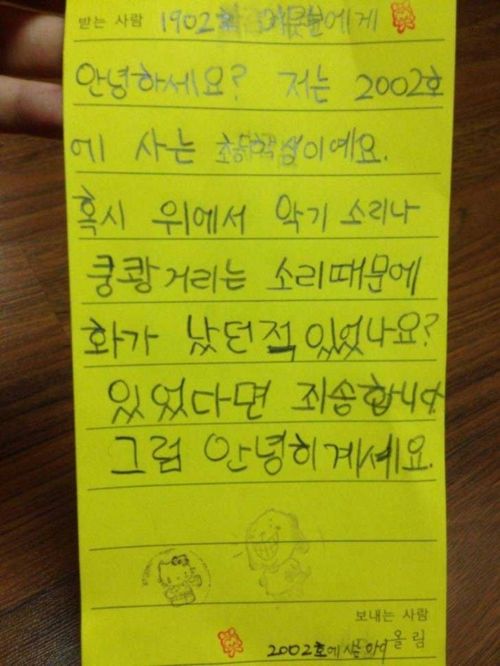 받는 사람 1902호 에게
안녕하세요? 저는 2002호
에 사는 초등학생이예요.
혹시 위에서 악기 소리나
쿵쾅거리는 소리때문에
화가 났던적 있었나요?
있었다면 죄송합니다.
그럼 안녕히계세요.
보내는 사람
2002호에 올림